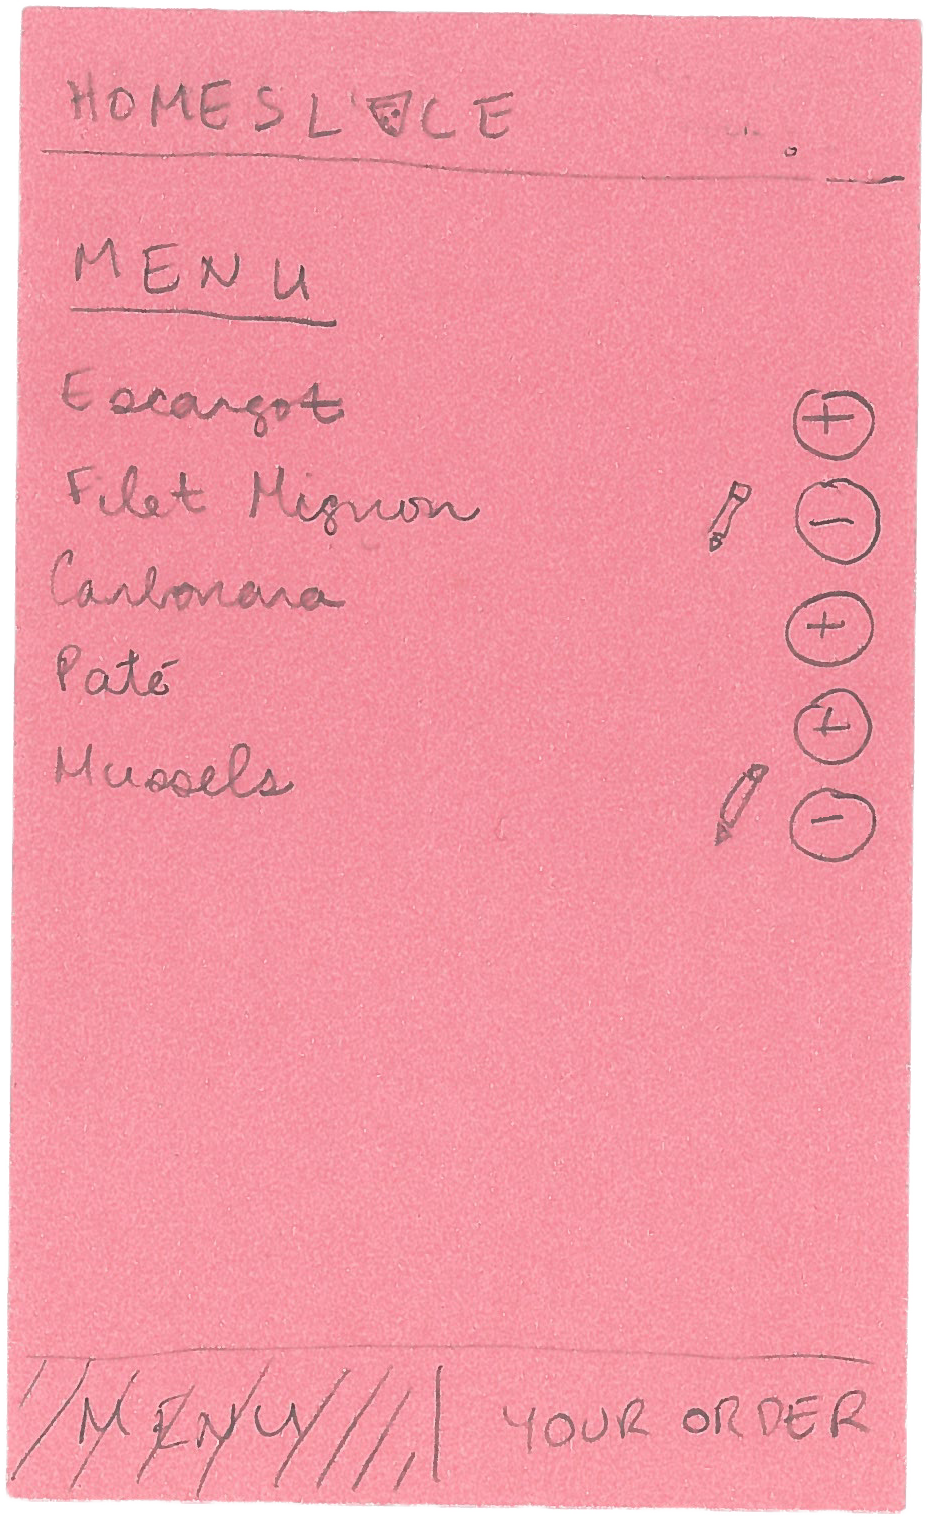 HOMESLICE
MENU
Escargot +
Filet Mignon -
Carbonara +
Paté +
Mussels -
MENU YOUR ORDER